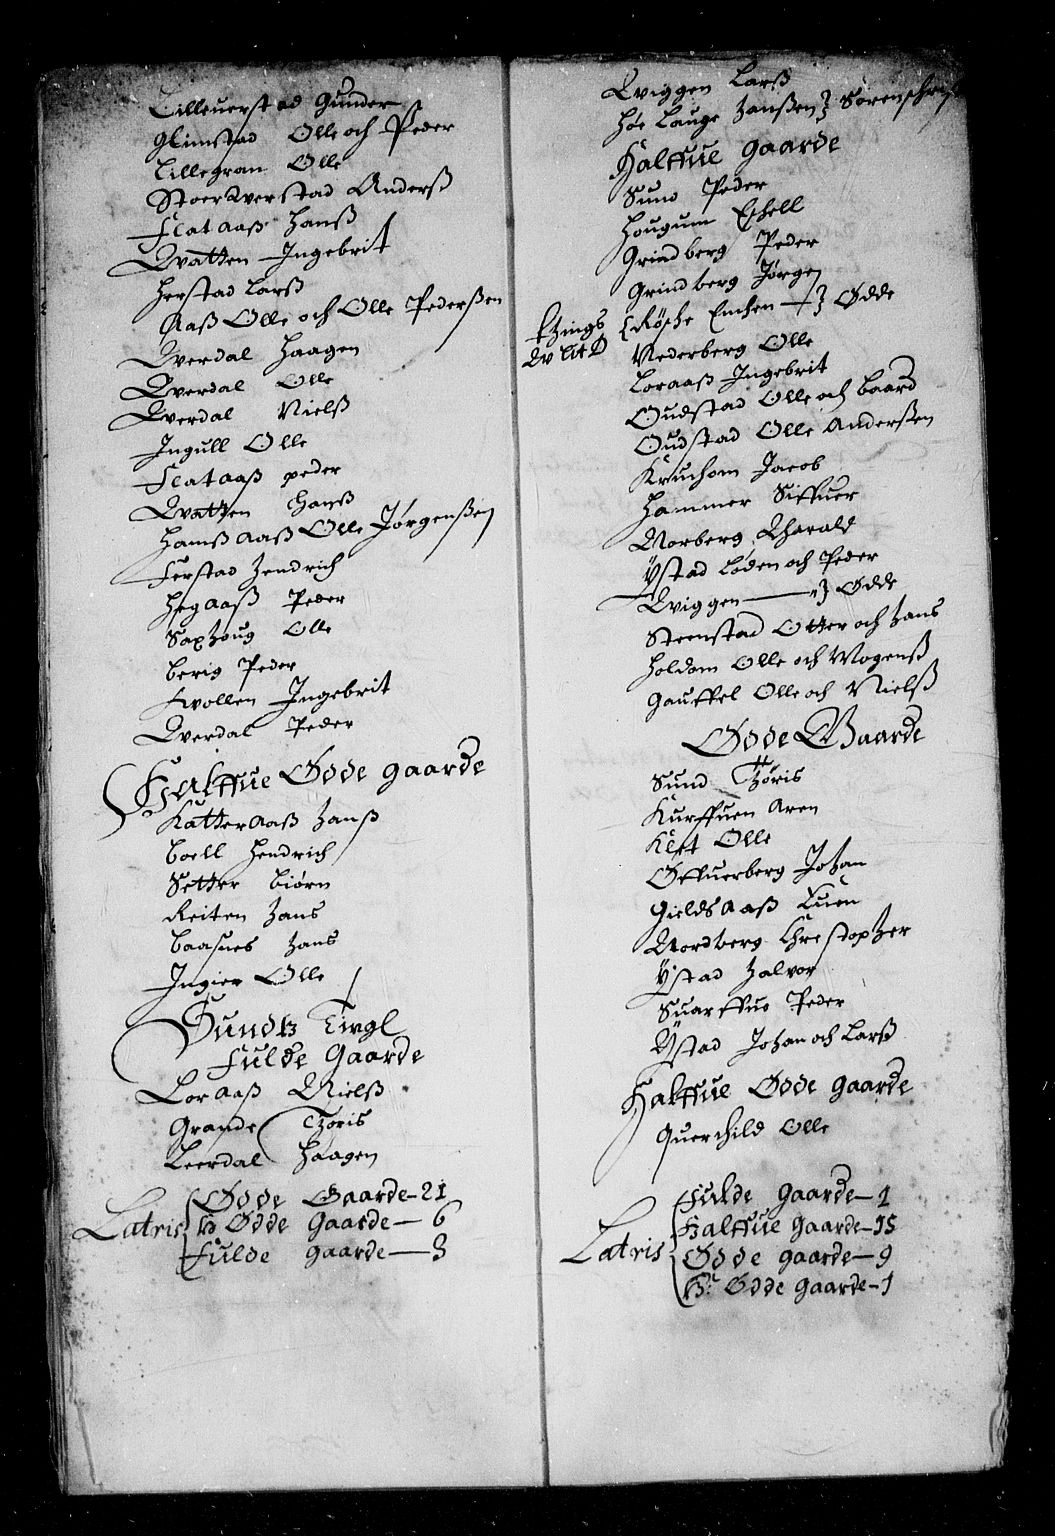 Lilleuerstad Gunder
Glimstad Olle och Peder
Lillegran Olle
Stoer Querstad Anderß
Flataaß Hanß
Quatten Ingebrit
Herstad Larß
Aaß Olle och Olle Pederßen
Querdal Haagen
Querdal Olle
Querdal Nielß
Ingull Olle
Flataaß peder
Quatten Hanß
Hamßaaß Olle Jørgenßen
Ferstad Hendrich
Hegaaß Peder
Saxhoug Olle
Berig Peder
Kvollen Ingebrit
Querdal Peder
Halffue Øde gaarde
Katteraaß Hanß
Boell Hendrich
Setter Biørn
Reiten Hans
Baasnes Hans
Ingier Olle
Sundtz Tingl
Fulde Gaarde
Loraaß Nielß
Grande Tzøris
Leerdal Haagen
Latris Øde Gaarde - 21
H Øde Gaarde - 6
Fulde gaarde - 3
Quiggen Larß
Høe Lauge Hanßen Sørenschrif
Halffue gaarde
Sund Peder
Hougum Eschell
Grindberg Peder
Grindberg Jørgen
Røsche Enchen Ødde
Nederberg Olle
Loraaß Ingebrit
Oudstad Olle och Baard
Oudstad Olle Anderßen
Kruchom Jacob
Hammer Siffuer
Norberg Harald
Ystad Loden och Peder
Quiggen Ødde
Steenstad Otter och Hans
Holdom Olle och Mogenß
Gauffel Olle och Nielß
Øde Gaarde
Sund Tzøris
Kurffuen Aren
Klet Olle
Øffuerberg Johan
Gieldsaaß Euen
Nordberg Christopher
Ystad Halvor
Suarffue Peder
Ystad Johan och Larß
Halffue Øde gaarde
Querchild Olle
Latris Fulde Gaarde - 1
Halffue Gaarde - 15
Øde gaarde - 9
H: Øde Gaarde - 1